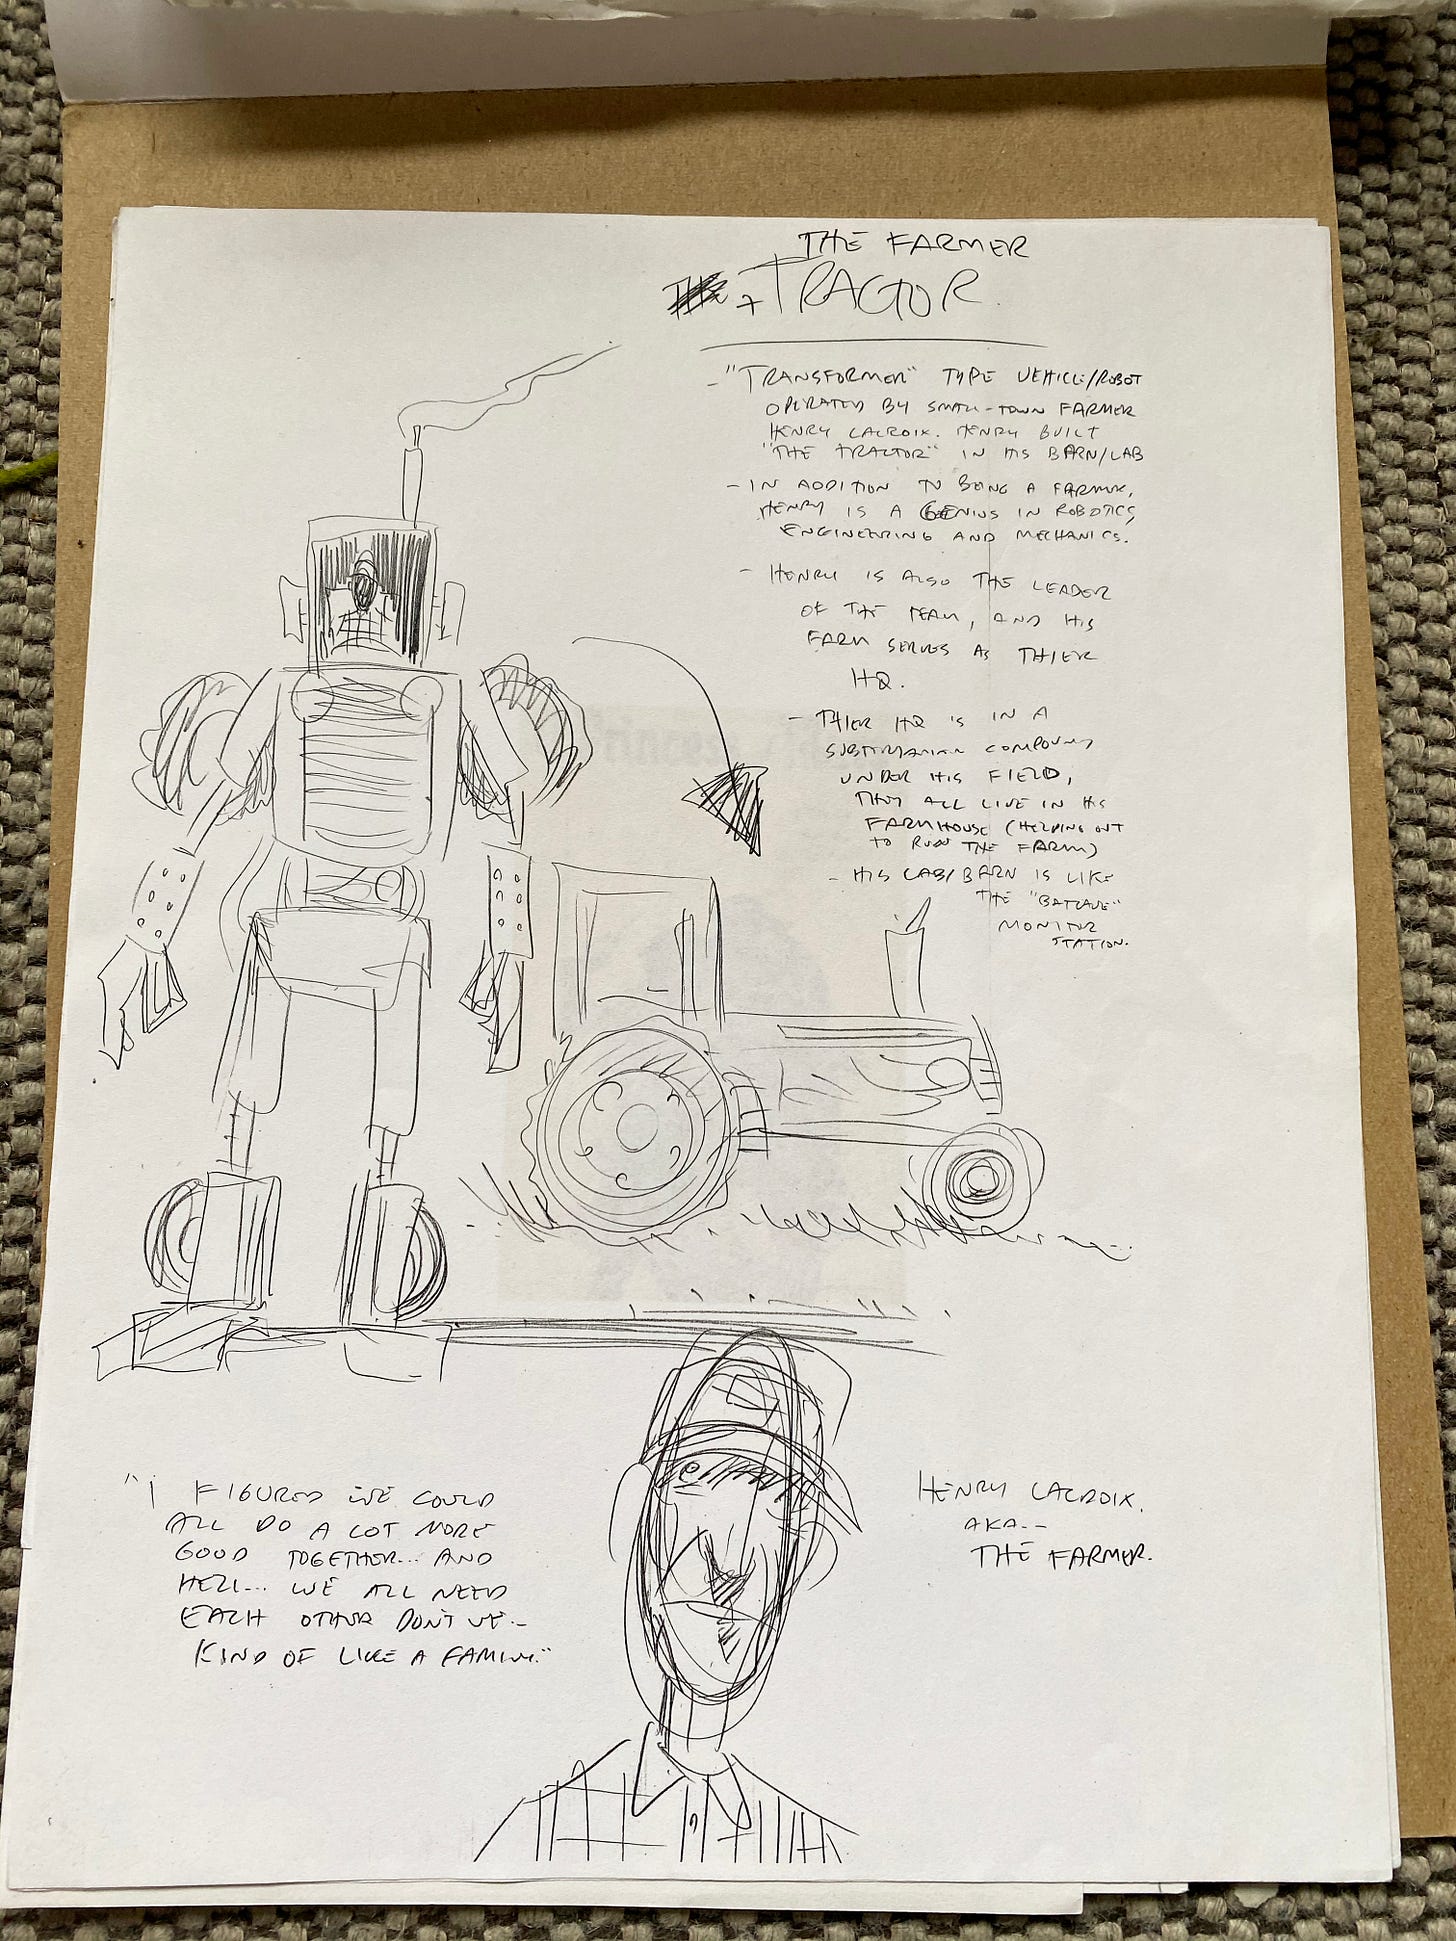 THE FARMER
+ TRACTOR.
- "TRANSFORMER" TYPE VEHICLE/ROBOT
OPERATED BY SMALL-TOWN FARMER
HENRY LACROIX. HENRY BUILT
"THE TRACTOR" IN HIS BARN/LAB
- IN ADDITION TO BEING A FARMER,
HENRY IS A GENIUS IN ROBOTICS,
ENGINEERING AND MECHANICS.
- HENRY IS ALSO THE LEADER
OF THE TEAM, AND HIS
FARM SERVES AS THIER
HQ.
- THIER HQ IS IN A
SUBTERRANIAN COMPOUND
UNDER HIS FIELD,
THEY ALL LIVE IN HIS
FARMHOUSE (HELPING OUT
TO RUN THE FARM)
- HIS LAB/BARN IS LIKE
THE "BATCAVE"
MONITOR
STATION.
"I FIGURED WE COULD
ALL DO A LOT MORE
GOOD TOGETHER... AND
HELL... WE ALL NEED
EACH OTHER DON'T WE--
KIND OF LIKE A FAMILY."
HENRY LACROIX.
AKA--
THE FARMER.